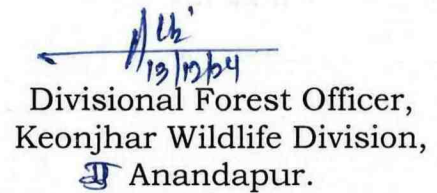 13/12/24
Divisional Forest Officer,
Keonjhar Wildlife Division,
Anandapur.